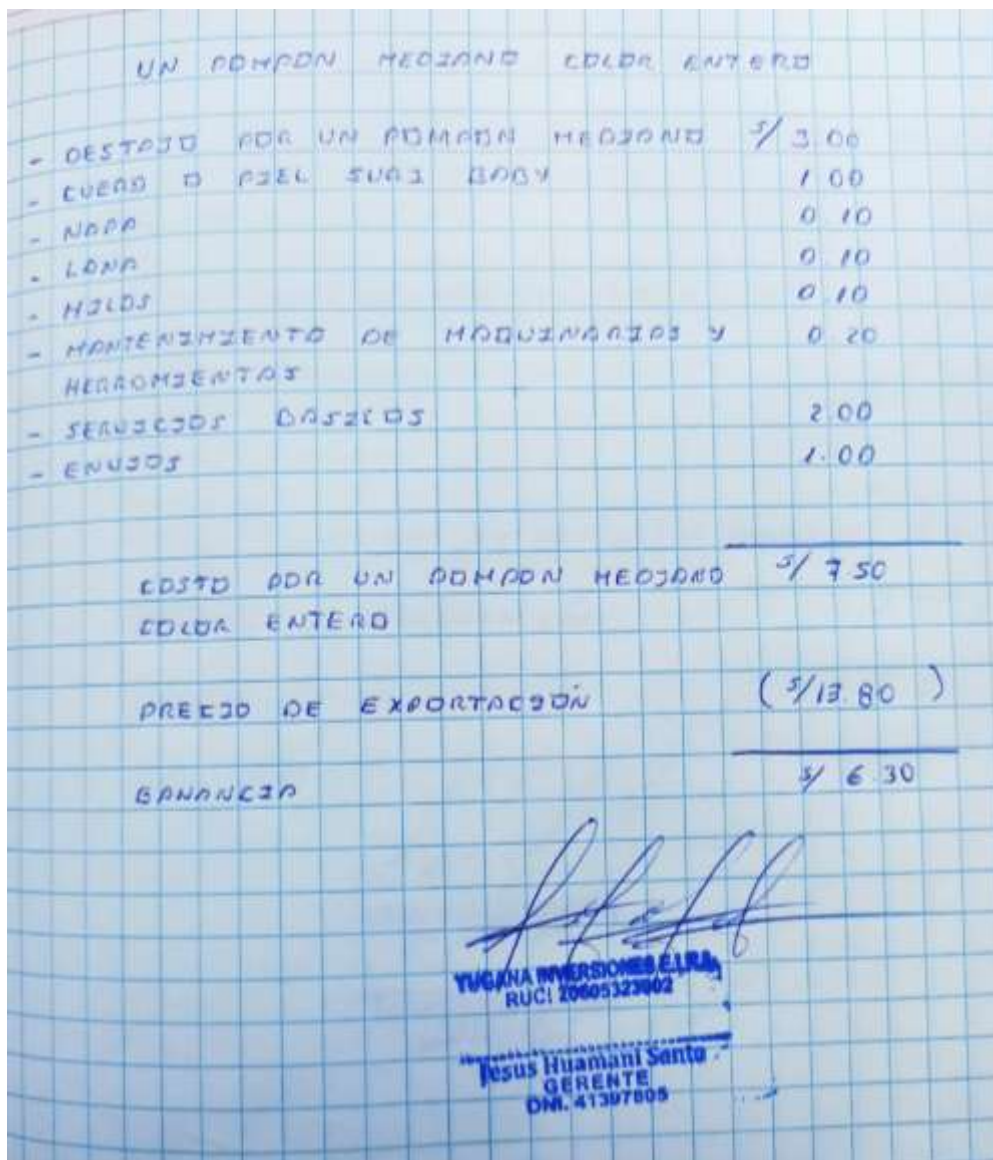 UN POMPON MEDIANO COLOR ENTERO
- DESTAJO POR UN POMPON MEDIANO S/ 3.00
- CUERO O PIEL SURI BABY 1.00
- NAPA 0.10
- LONA 0.10
- HILOS 0.10
- MANTENIMIENTO DE MAQUINARIAS Y 0.20
HERRAMIENTAS
- SERVICIOS BASICOS 2.00
- ENVIOS 1.00
COSTO POR UN POMPON MEDIANO S/ 7.50
COLOR ENTERO
PRECIO DE EXPORTACIÓN (S/13.80)
GANANCIA S/ 6.30
YUGANA INVERSIONES E.I.R.L.
RUC: 20605323002
Jesus Huamani Santo
GERENTE
DNI. 41397805